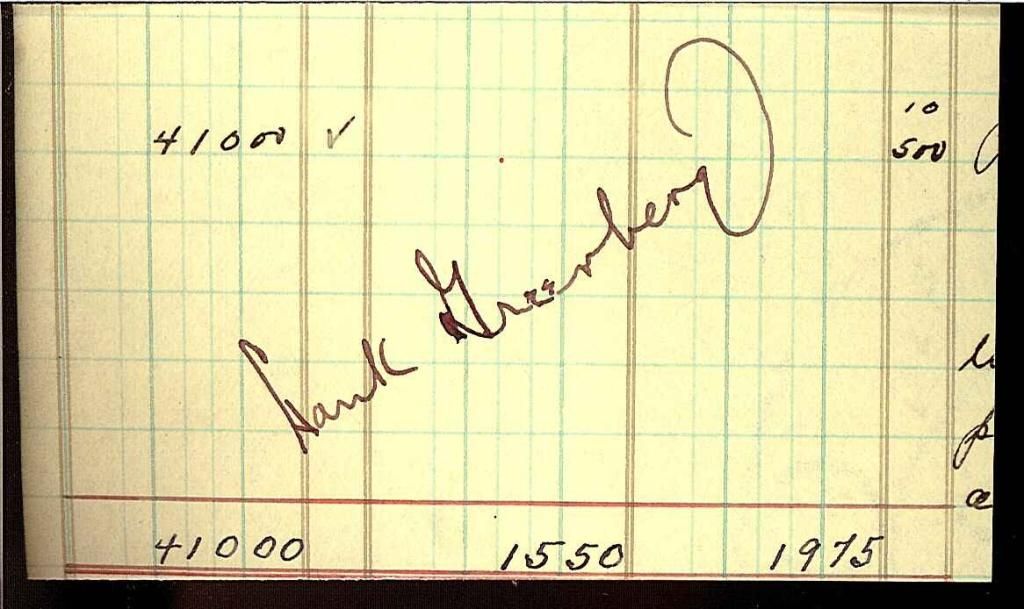 10
41000 ✓ 500
Hank Greenberg
41000 1550 1975